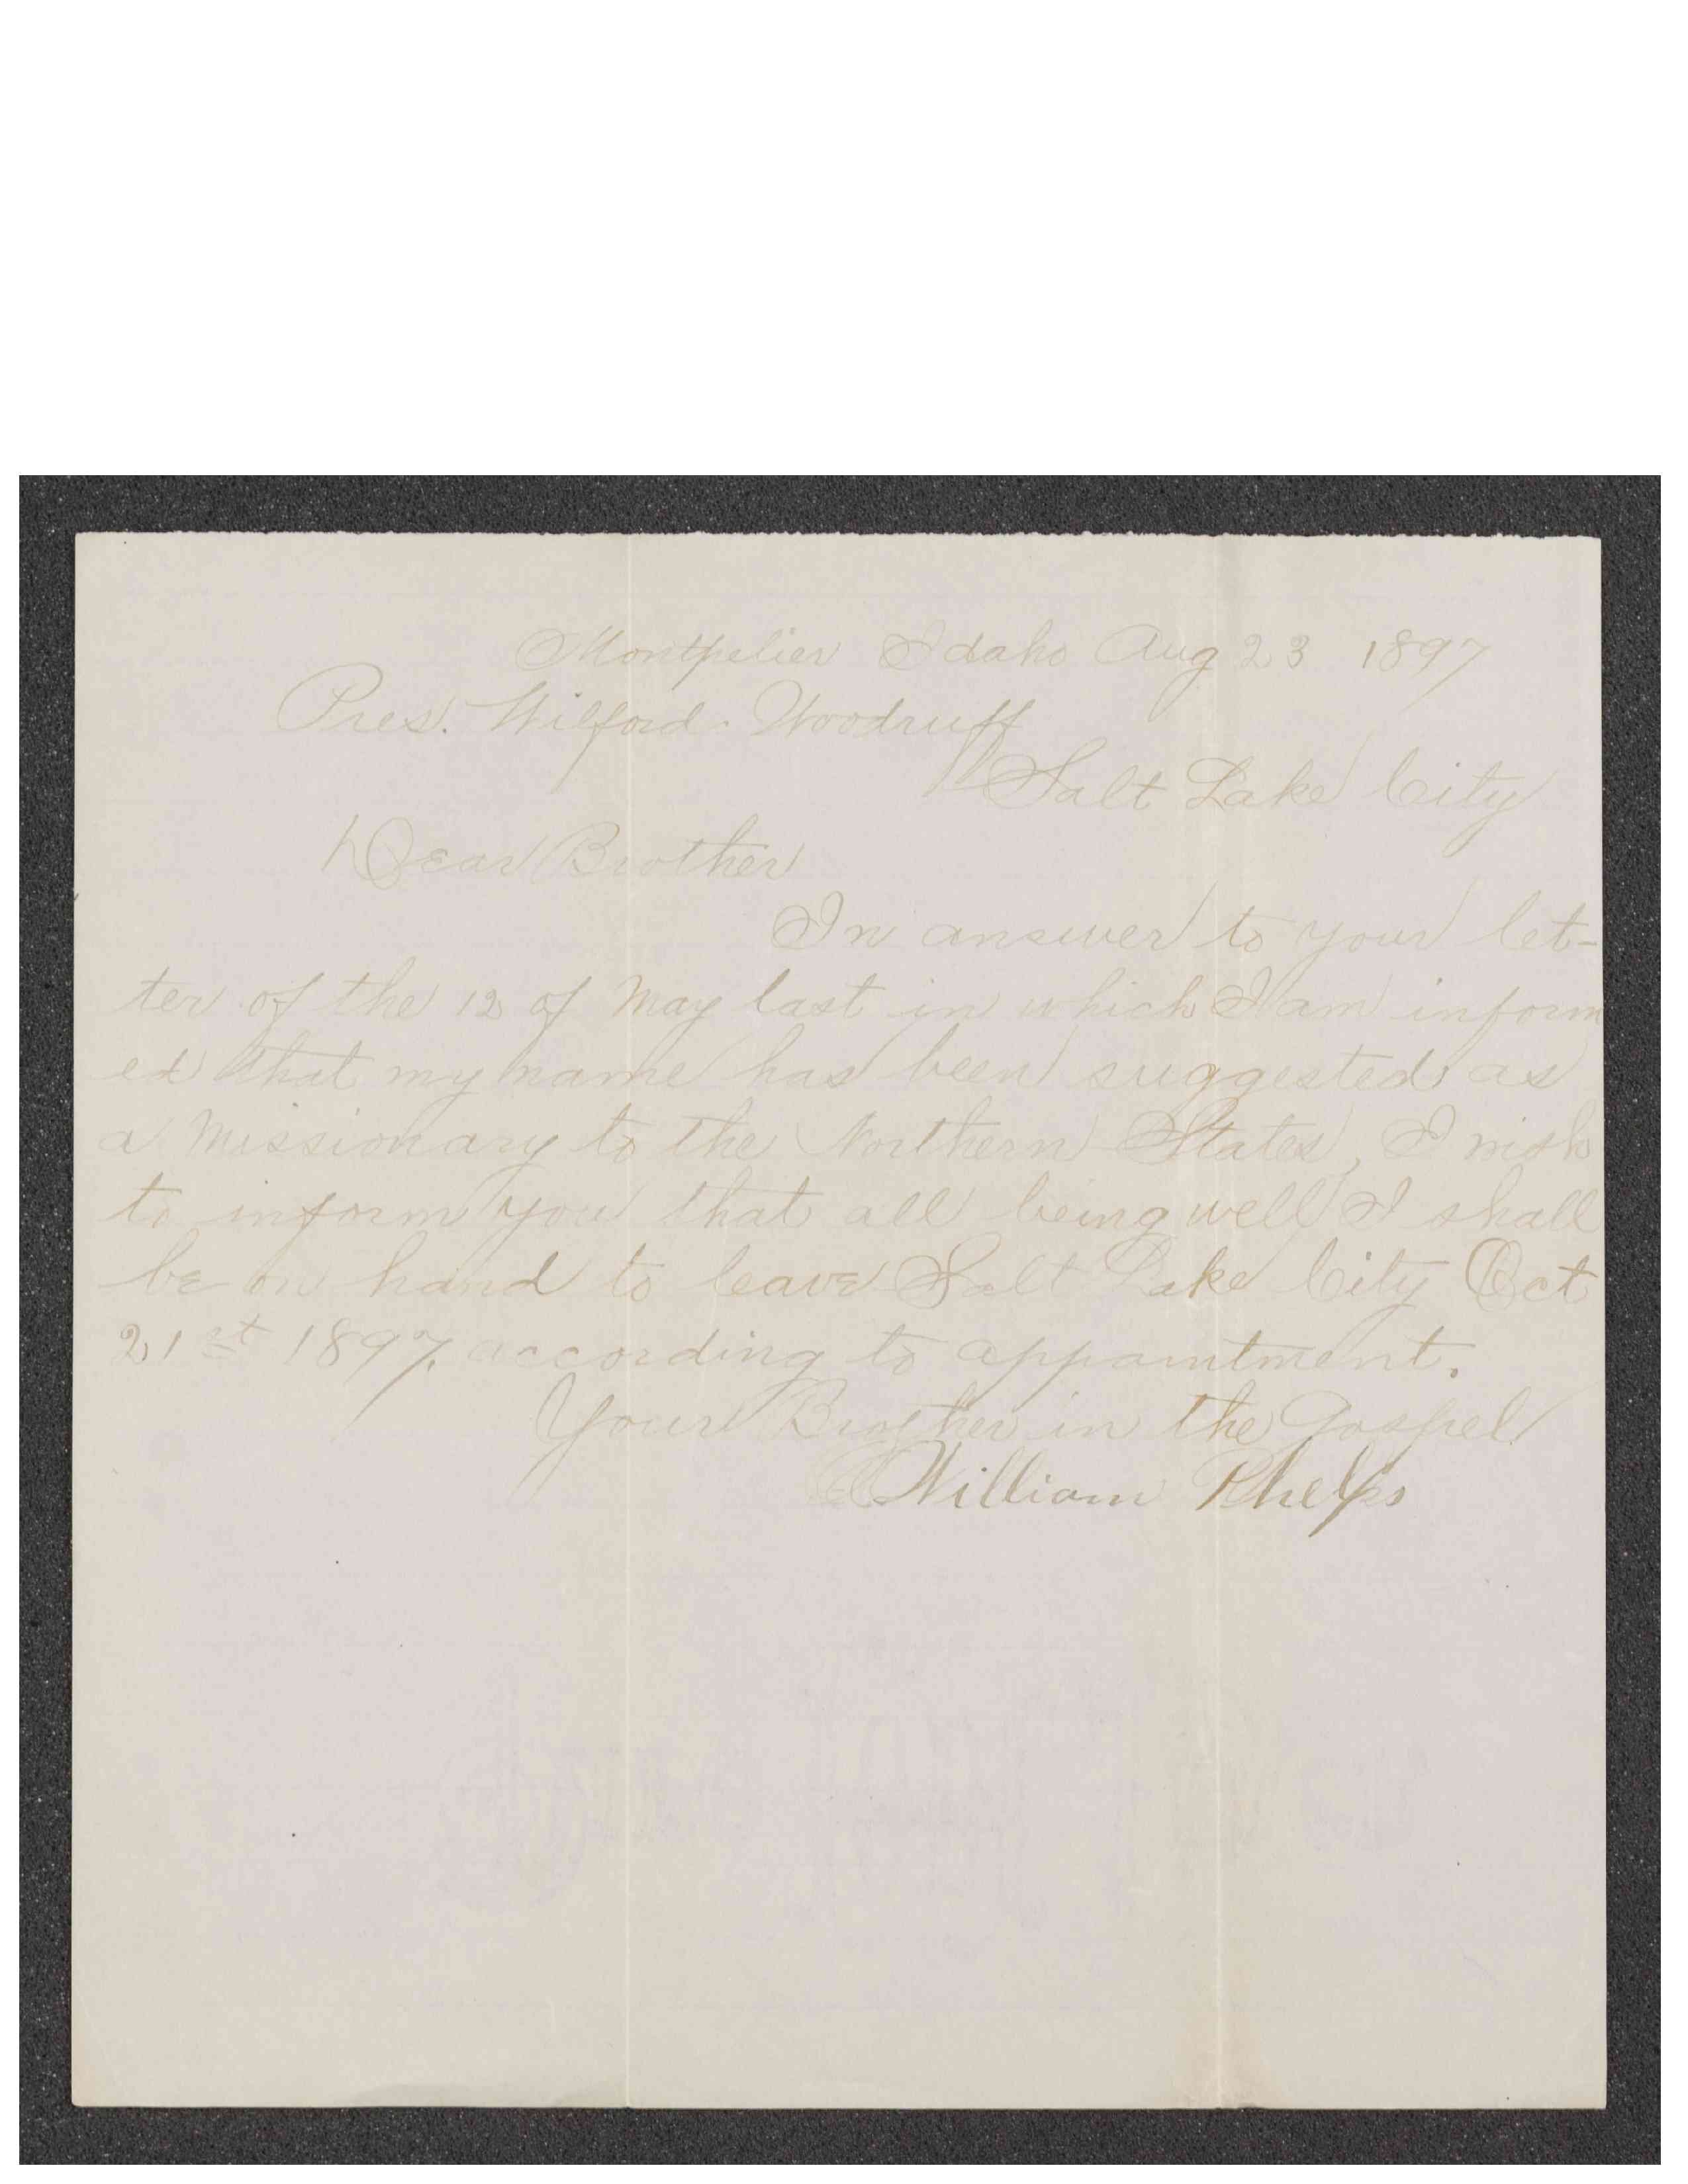 Montpelier Idaho Aug 23 1897
Pres. Wilford. Woodruff
Salt Lake City
Dear Brother
In answer to your let-
ter of the 12 of May last in which I am inform
ed that my name has been suggested as
a Missionary to the Northern States, I wish
to inform you that all being well I shall
be on hand to leave Salt Lake City Oct
21st 1897. according to appointment.
Your Brother in the Gospel
William Phelps